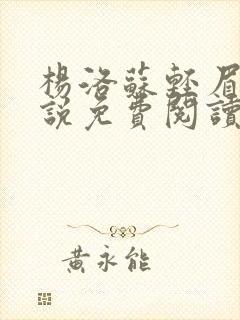 楊洛蘇輕眉
說免費閱讀
黃永能